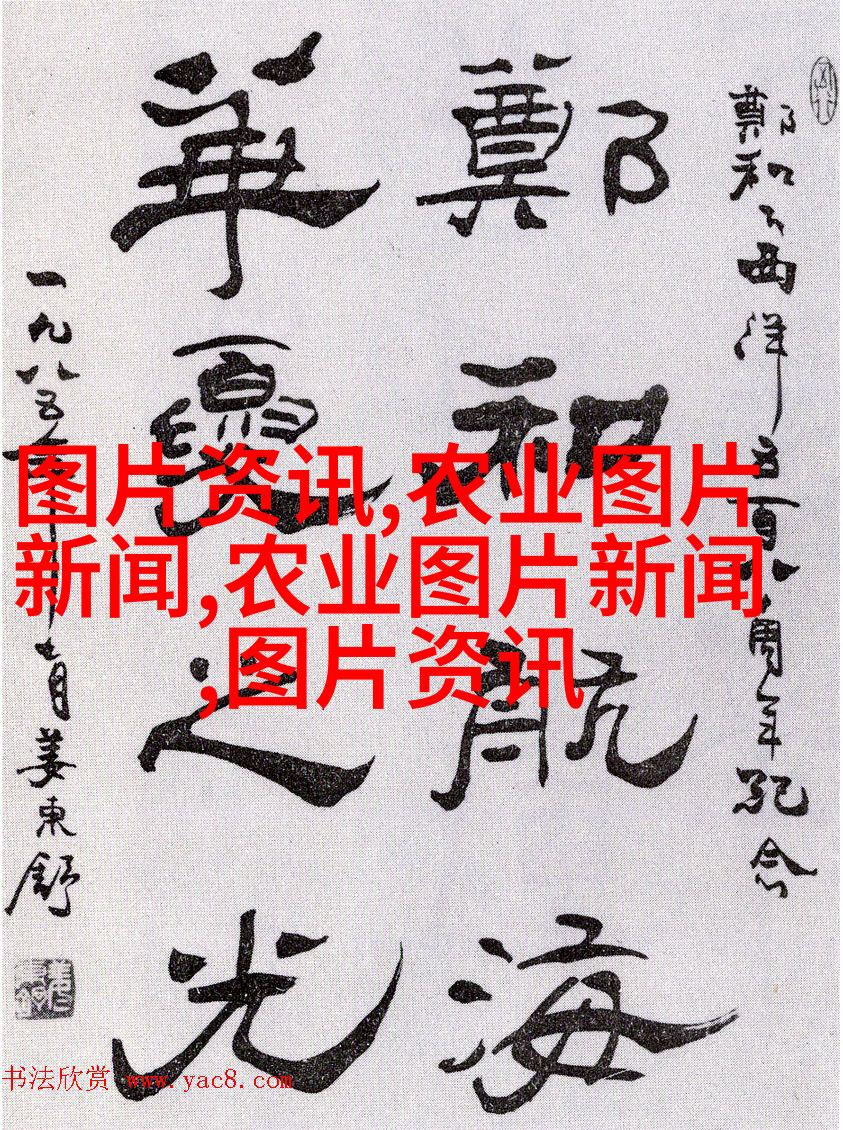 鄭和下西洋五百八十周年紀念
鄭和航海
華夏之光
一九八五年月姜東舒
图片资讯,农业图片
新闻,农业图片新闻
,图片资讯
书法欣赏 www.yac8.com